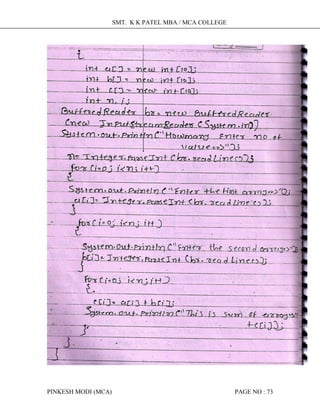 SMT. K K PATEL MBA / MCA COLLEGE
{
int a[] = new int [10];
int b[] = new int [10];
int c[] = new int [10];
int n, i;
BufferedReader br = new BufferedReader
(new InputStreamReader (System.in))
System.out.println("Howmany Enter no of
value =>");
n= Integer.parseInt (br.readLine());
for(i=0; i<n; i++)
{
System.out.println("Enter the first arrays");
a[i]= Integer.parseInt (br.readLine());
}
for(i=0; i<n; i++)
{
System.out.println("Enter the second arrays");
b[i]= Integer.parseInt (br.readLine());
}
for(i=0; i<n; i++)
{
c[i]= a[i] + b[i];
System.out.println("This is sum of arrays"
+c[i]);
}
}
}
PINKESH MODI (MCA) PAGE NO : 73